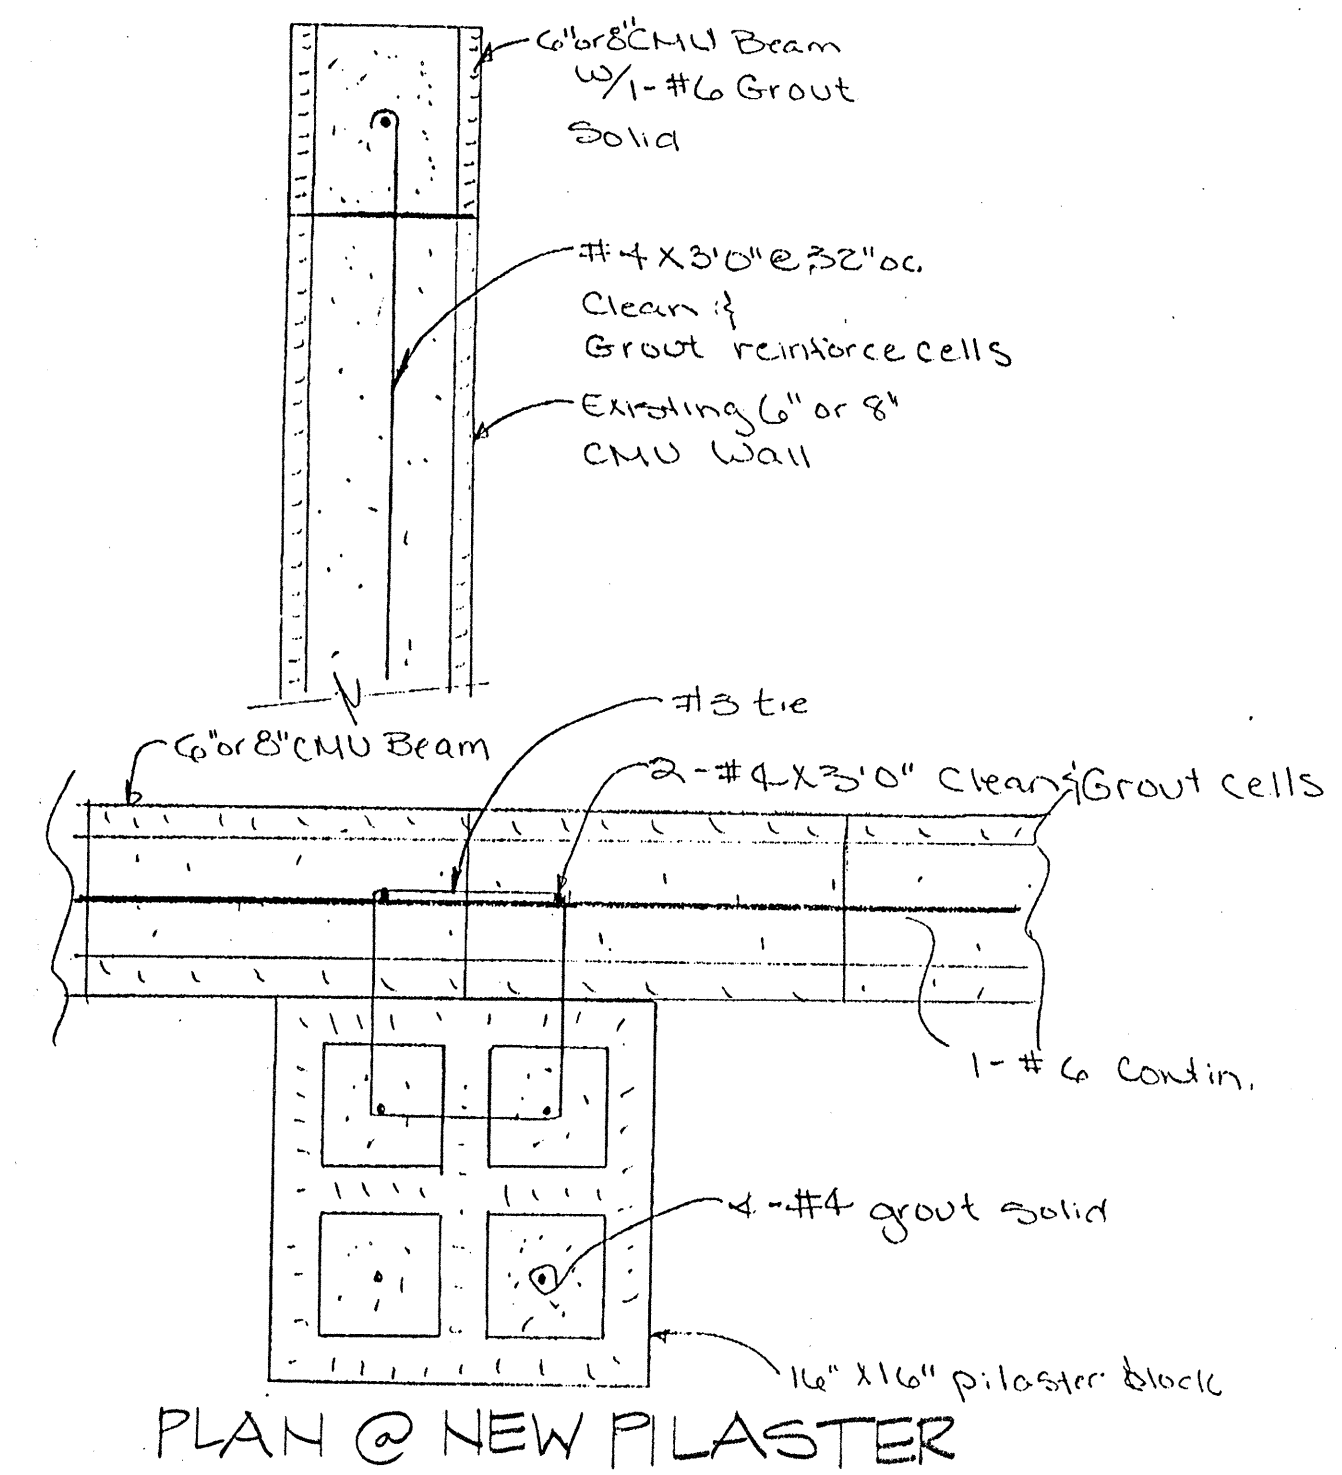 6"or8"CMU Beam
W/1-#6 Grout
Solid
#4 X 3'0" @ 32" oc.
Clean &
Grout reinforce cells
Existing 6" or 8"
CMU Wall
#3 tie
6"or 8"CMU Beam
2-#4 X 3'0" Clean & Grout cells
1-#6 Contin.
4-#4 grout solid
16" X 16" pilaster block
PLAN @ NEW PILASTER